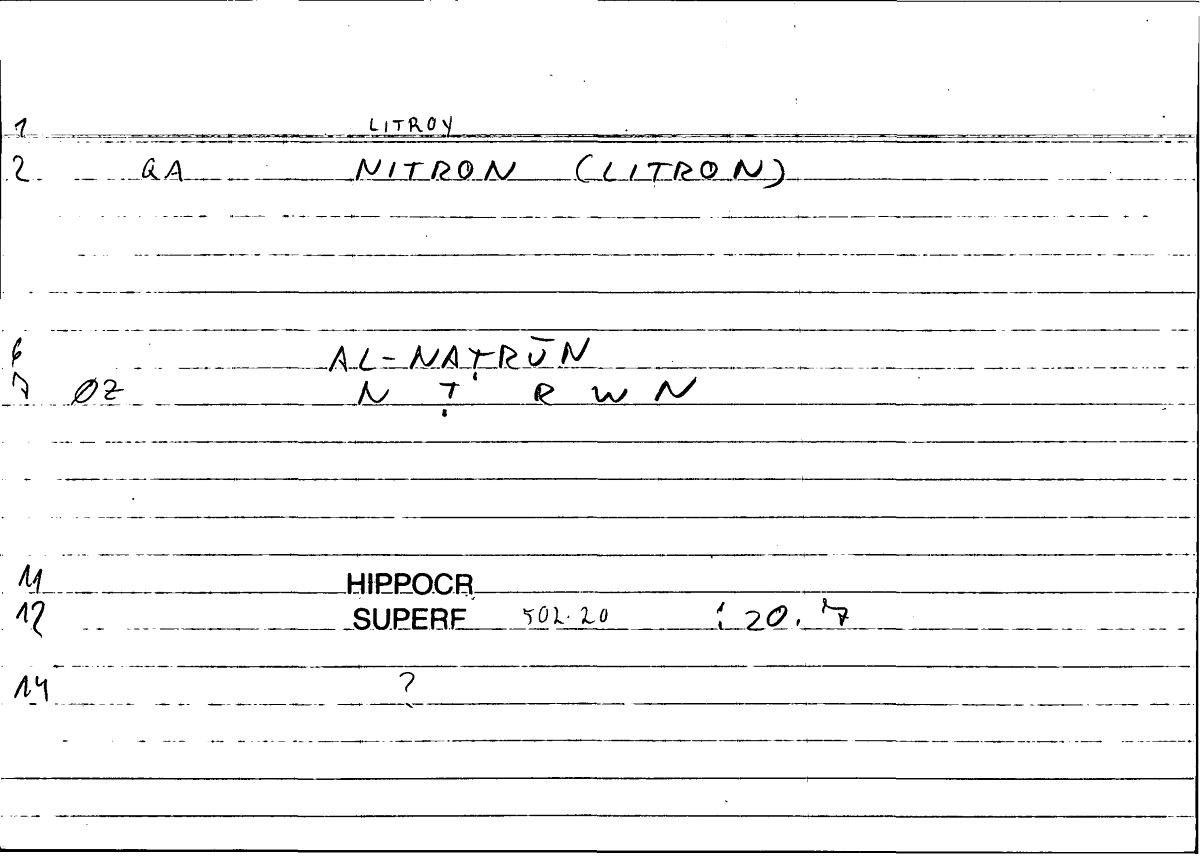 1 LITROY
2 QA NITRON (LITRON)
6 AL-NAṬRŪN
7 ØZ N Ṭ R W N
11 HIPPOCR
12 SUPERF 502.20 : 20.7
14 ?